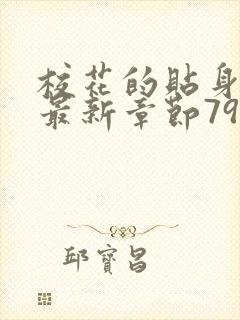 校花的貼身
最新章節79
邱寶昌